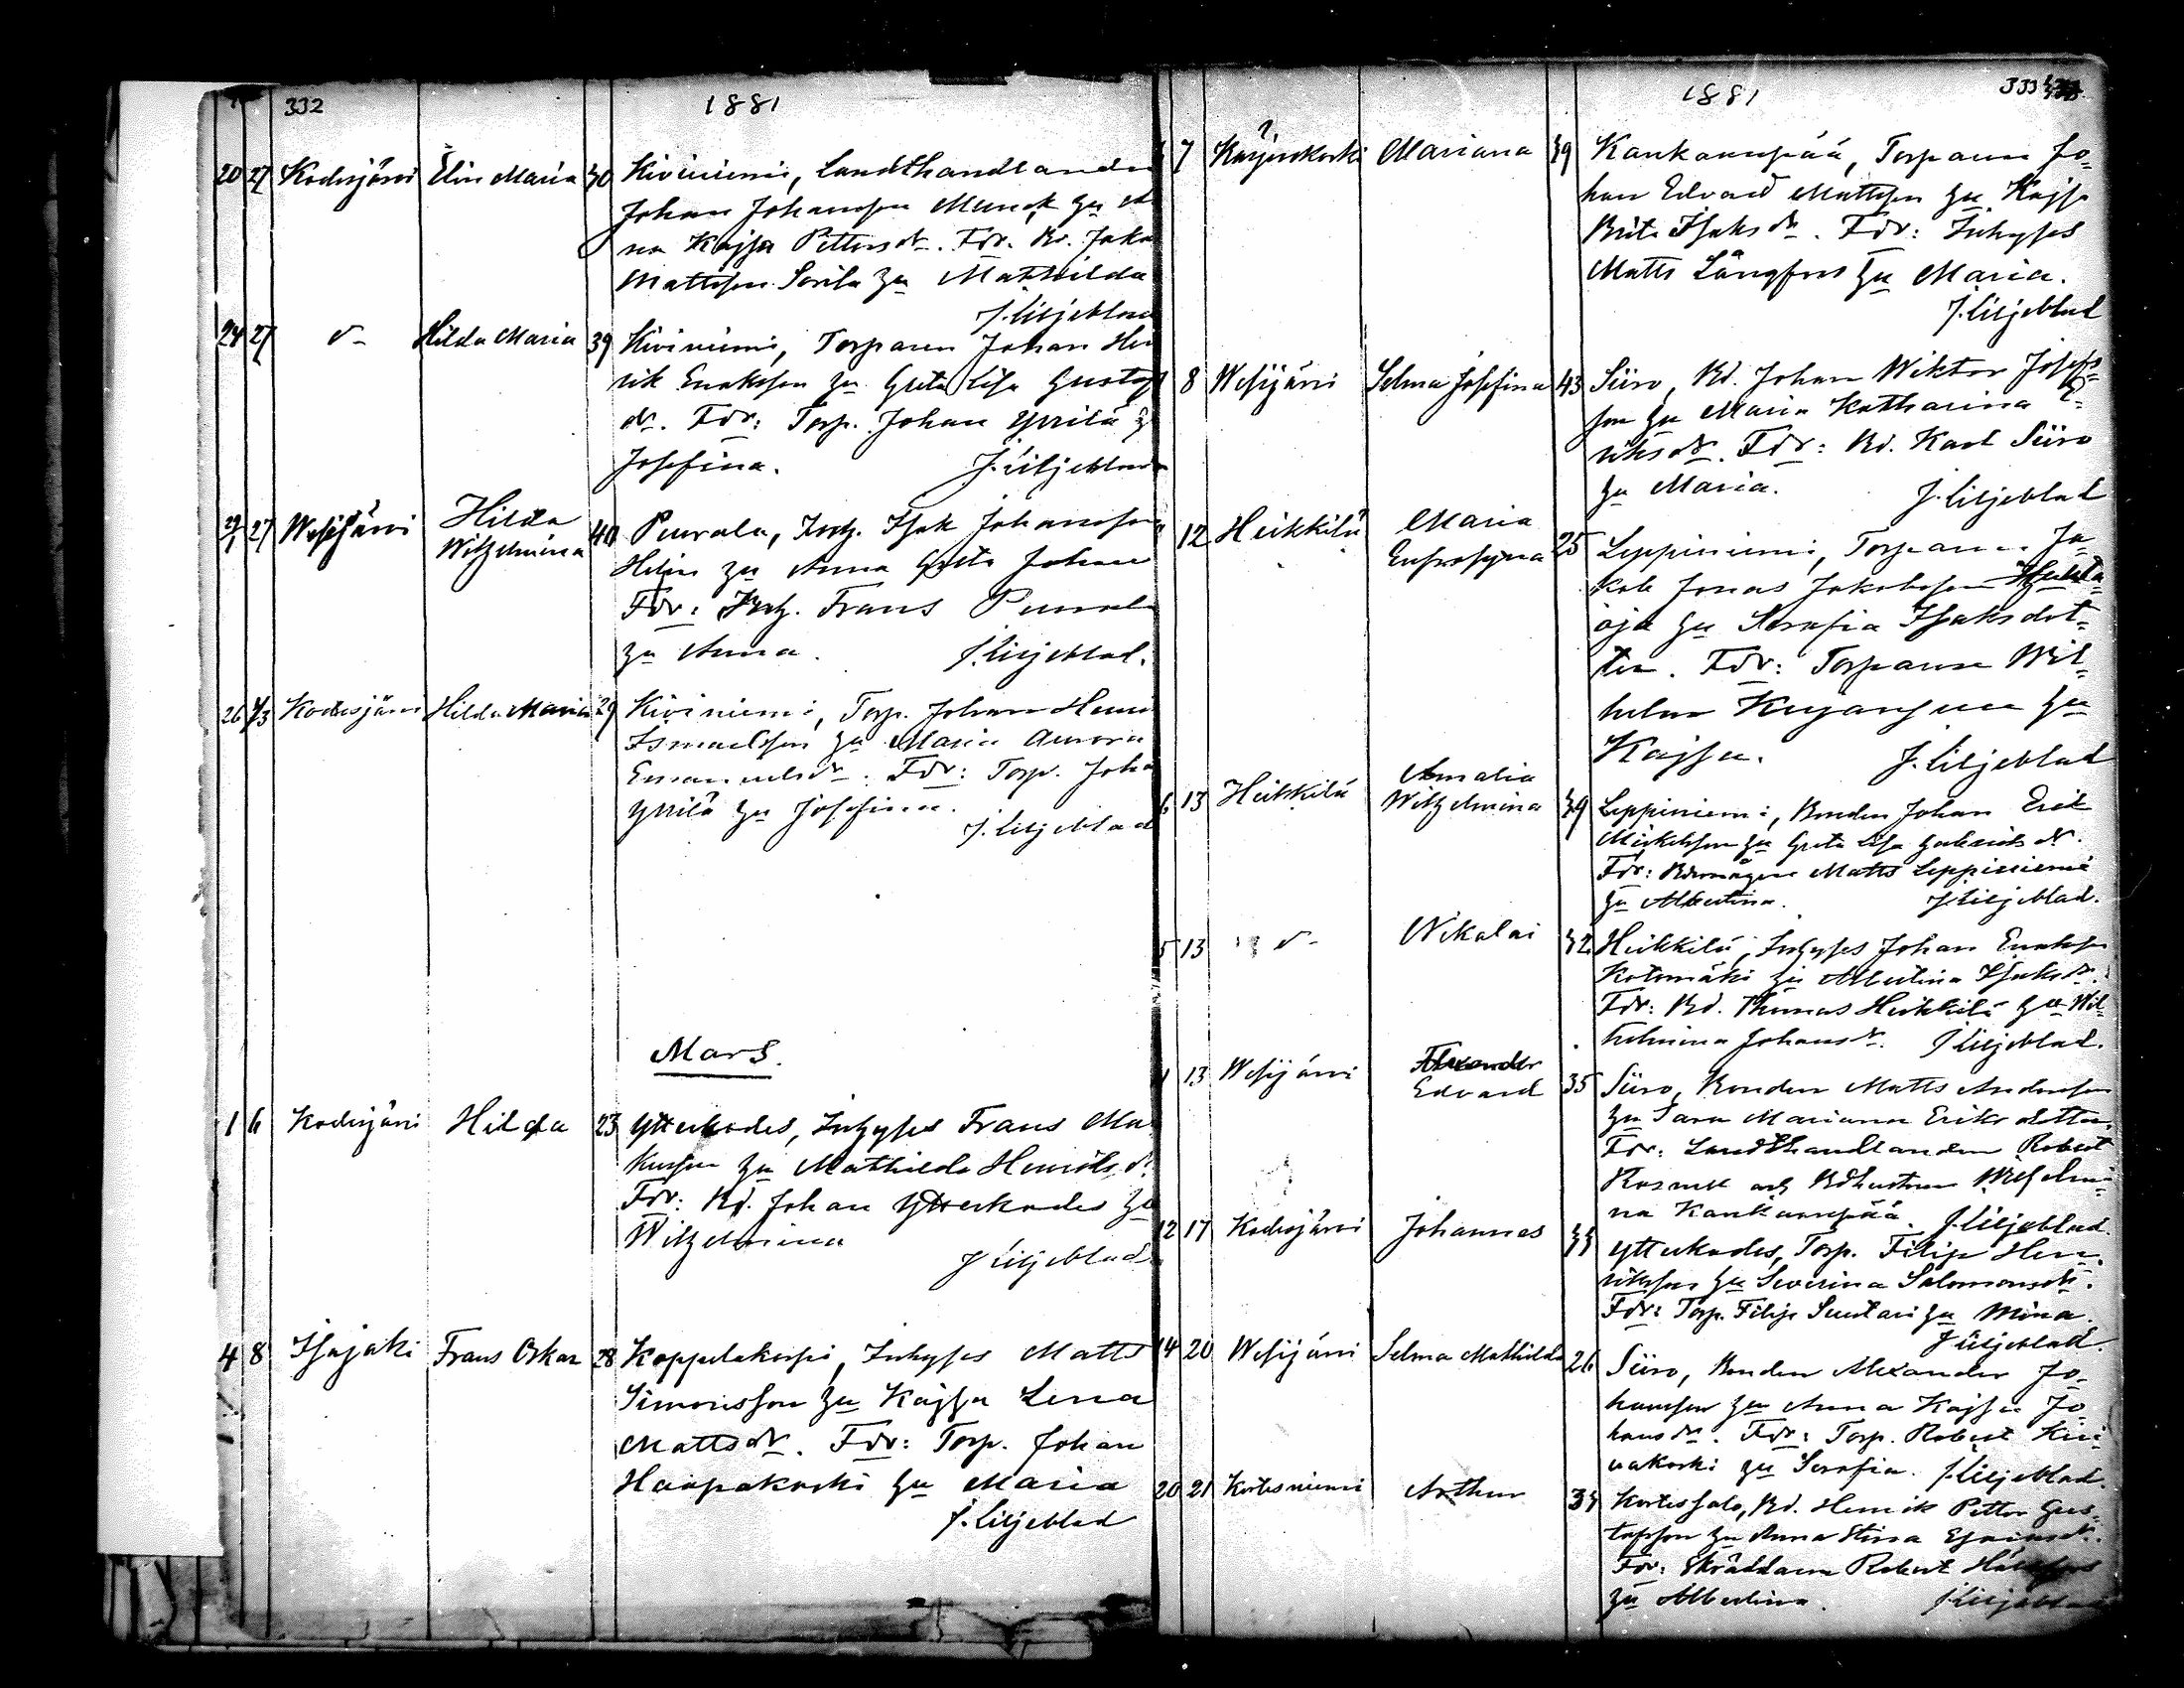 332
1881
20 27 Kodesjärvi Elin Maria 30 Kiviniemi, Landthandlanden
Johan Johansson Munck hu
na Kajsa Pettersdr. Fdr. Bd. Jako
Mattsson Sorila hu Mathilda
J. Liljeblad
24 27 d- Hilda Maria 39 Kiviniemi, Torparen Johan Hen
rik Enoksson hu Greta Lisa Gustaf
dr. Fdr: Torp. Johan Yrrilä
Josefina. J. Liljeblad
27 Wesijärvi Hilda Wilhelmina 40 Purala, Isak Johansson
hu Anna Greta Johan
Fdr: Frans
hu Anna. J. Liljeblad.
26 1/3 Kodesjärvi Hilda Maria 29 Kiviniemi, Torp. Johan Henri
Ismaelsson hu Maria Aurora
Emanuelsdr. Fdr: Torp. Joha
Yrrilä hu Josefina.
J. Liljeblad
Mars.
1 6 Kodesjärvi Hilda 23 Ytterkodes, Inhyses Frans Ma
kusson hu Mathilda Henriksd.
Fdr: Bd. Johan Ytterkodes hu
Wilhelmina
J Liljeblad
4 8 Isojoki Frans Oskar 28 Koppelokorpi, Inhyses Matts
Simonsson hu Kajsa Lena
Mattsdr. Fdr: Torp. Johan
Haapakoski hu Maria
J. Liljeblad
1881
333
7 Kärjenkoski Mariana 39 Kankaanpää, Torparen Jo-
han Edvard Mattsson hu Kajsa
Brita Isaksdr. Fdr: Inhyses
Matts Långfors hu Maria.
J. Liljeblad
8 Wesijärvi Selma Josefina 43 Siiro, Bd. Johan Wiktor Josefs-
son hu Maria Katharina E-
riksdr. Fdr: Bd. Karl Siiro
hu Maria. J. Liljeblad
12 Heikkilä Maria Eufrosyna 25 Leppiniemi, Torparen Ja-
kob Jonas Jakobsson
oja hu Serafia Isaksdot-
ter. Fdr: Torparen Wil-
helm hu
Kajsa. J. Liljeblad
6 13 Heikkilä Amalia Wilhelmina 39 Leppiniemi, Bonden Johan Erik
Mickelsson hu Greta Lisa Gabrielsdr.
Fdr: Bdemågen Matts Leppiniemi
hu Albertina. J. Liljeblad.
5 13 d- Nikolai 32 Heikkilä, Inhyses Johan Enoksson
Kotomäki hu Albertina Isaksdr.
Fdr: Bd. Thomas Heikkilä hu Wil-
helmina Johansdr. J Liljeblad.
1 13 Wesijärvi Alexander Edvard 35 Siiro, Bonden Matts Andersson
hu Sara Mariana Eriksdotter.
Fdr: Landthandlanden Robert
Rosnell och Bdhustrun Wilhelmi-
na Kankaanpää. J. Liljeblad.
12 17 Kodesjärvi Johannes 33 Ytterkodes, Torp. Filip Hen-
riksson hu Severina Salomonsdr.
Fdr: Torp. Filip Suutari hu Mina.
J Liljeblad.
14 20 Wesijärvi Selma Mathilda 26 Siiro, Bonden Alexander Jo-
hansson hu Anna Kajsa Jo
hansdr. Fdr: Torp. Robert Kui-
vakoski hu Serafia. J. Liljeblad.
20 21 Kortesniemi Arthur 33 Kortessalo, Bd. Henrik Petter Gus-
tafsson hu Anna Stina Esaiasdr.
Fdr: Skräddaren Robert
hu Albertina. J. Liljeblad